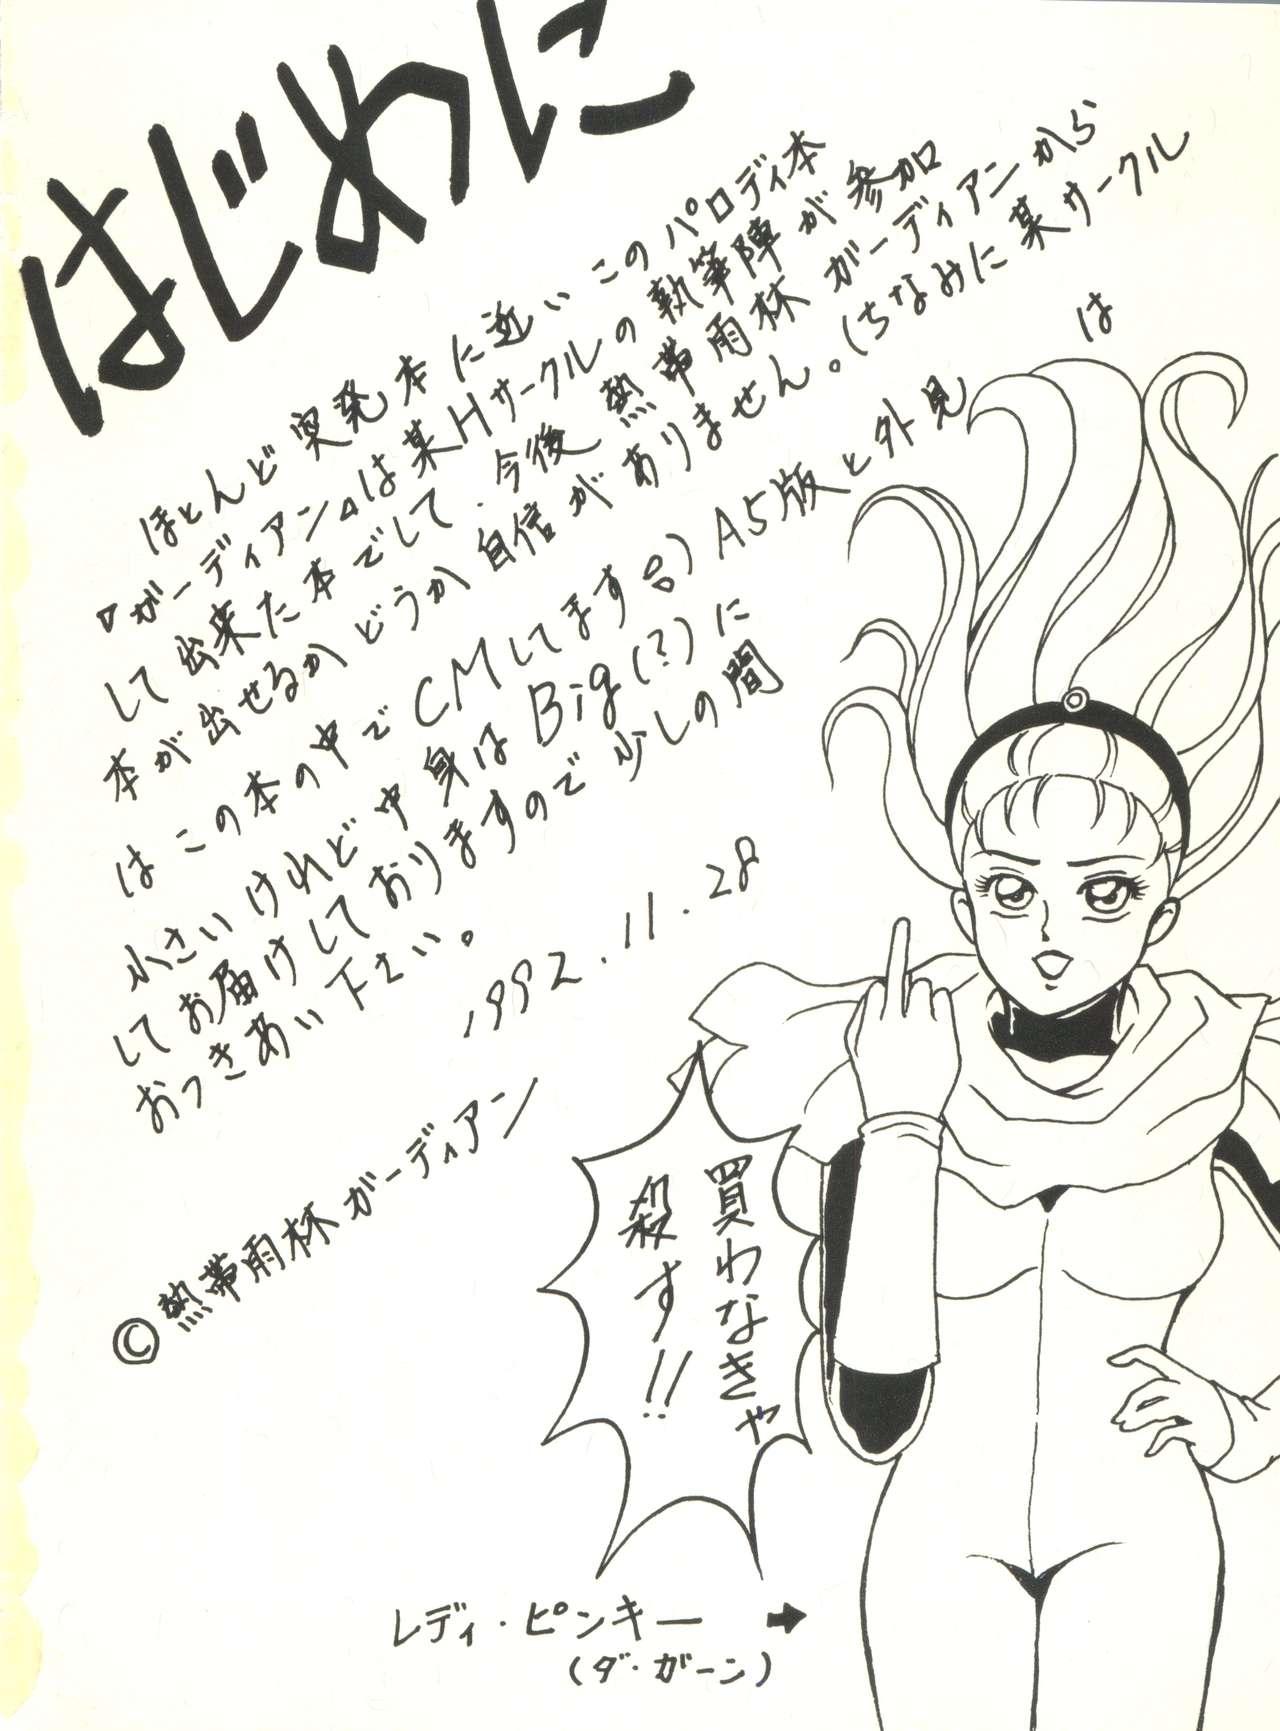 はじめに
ほとんど突発本に近いこのパロディ本
『ガーディアン』は某Hサークルの執筆陣が参加
して出来た本でして、今後熱帯雨林ガーディアンから
本が出せるかどうか自信がありません。(ちなみに某サークル
はこの本の中でCMしてます台) A5版と外見は
小さいけれど中身はBig(?)に
してお届けしておりますので少しの間
おつきあい下さい。
1992.11.28
©熱帯雨林ガーディアン
買わなきゃ
殺す!!
レディ・ピンキー →
(ダ・ガーン)